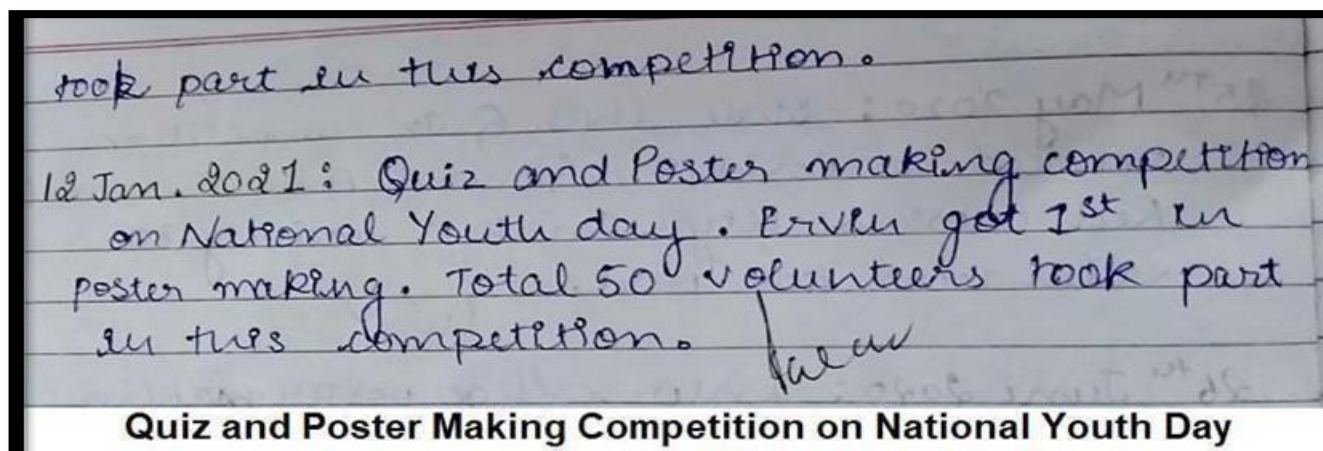 took part in this competition.
12 Jan. 2021: Quiz and Poster making competition
on National Youth day. Ervin got 1st in
poster making. Total 50 volunteers took part
in this competition.
Quiz and Poster Making Competition on National Youth Day